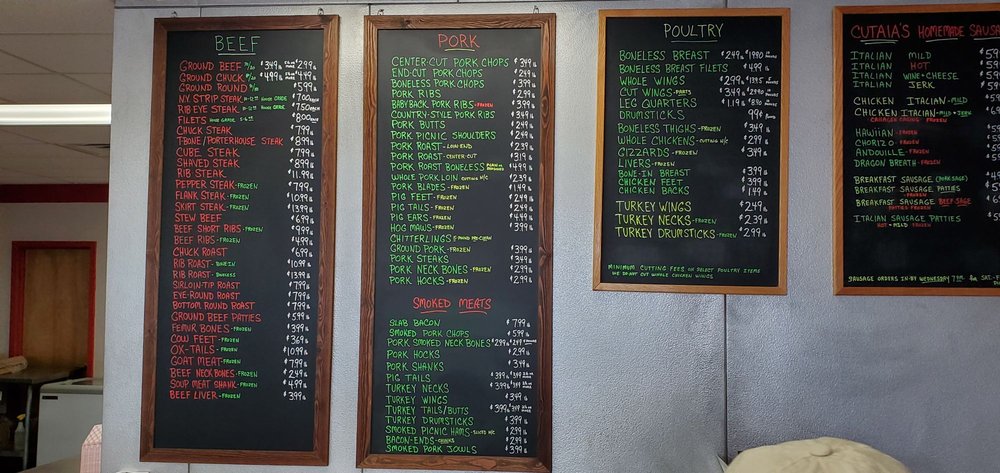 BEEF
GROUND BEEF $3.49 lb $2.99 lb
GROUND CHUCK $4.99 lb $4.49 lb
GROUND ROUND $5.99 lb
NY. STRIP STEAK
RIB EYE STEAK
FILETS
CHUCK STEAK $7.99 lb
T-BONE/PORTERHOUSE STEAK $8.99 lb
CUBE STEAK $7.99 lb
SHAVED STEAK $8.99 lb
RIB STEAK $11.99 lb
PEPPER STEAK-FROZEN $7.99 lb
FLANK STEAK-FROZEN $10.99 lb
SKIRT STEAK-FROZEN $13.99 lb
STEW BEEF $6.99 lb
BEEF SHORT RIBS-FROZEN $9.99 lb
BEEF RIBS-FROZEN $4.99 lb
CHUCK ROAST $6.99 lb
RIB ROAST-BONE-IN $10.99 lb
RIB ROAST-BONELESS $13.99 lb
SIRLOIN-TIP ROAST $7.99 lb
EYE-ROUND ROAST $7.99 lb
BOTTOM ROUND ROAST $7.99 lb
GROUND BEEF PATTIES $5.99 lb
FEMUR BONES-FROZEN $3.99 lb
COW FEET-FROZEN $3.69 lb
OX-TAILS-FROZEN $10.99 lb
GOAT MEAT-FROZEN $7.99 lb
BEEF NECKBONES-FROZEN $2.49 lb
SOUP MEAT SHANK-FROZEN $4.99 lb
BEEF LIVER-FROZEN $3.99 lb
PORK
CENTER-CUT PORK CHOPS $3.49 lb
END-CUT PORK CHOPS $2.49 lb
BONELESS PORK CHOPS $3.99 lb
PORK RIBS $2.99 lb
BABYBACK PORK RIBS-FROZEN $3.99 lb
COUNTRY-STYLE PORK RIBS $3.49 lb
PORK BUTTS $2.49 lb
PORK PICNIC SHOULDERS $2.49 lb
PORK ROAST-LOIN-END $2.39 lb
PORK ROAST-CENTER-CUT $3.19 lb
PORK ROAST BONELESS $4.99 lb
WHOLE PORK LOIN CUTTING N/C $2.39 lb
PORK BLADES-FROZEN $1.49 lb
PIG FEET-FROZEN $2.49 lb
PIG TAILS-FROZEN $2.99 lb
PIG EARS-FROZEN $4.49 lb
HOG MAWS-FROZEN $3.99 lb
CHITTERLINGS
GROUND PORK-FROZEN $3.99 lb
PORK STEAKS $3.49 lb
PORK NECK BONES-FROZEN $2.99 lb
PORK HOCKS-FROZEN $2.99 lb
SMOKED MEATS
SLAB BACON $7.99 lb
SMOKED PORK CHOPS $5.99 lb
PORK SMOKED NECK BONES $2.99 lb $2.49
PORK HOCKS $2.99 lb
PORK SHANKS $3.49 lb
PIG TAILS $3.99 lb $3.49
TURKEY NECKS $3.99 lb $3.49
TURKEY WINGS $3.49 lb
TURKEY TAILS/BUTTS $3.99 lb $3.49
TURKEY DRUMSTICKS $3.99 lb
SMOKED PICNIC HAMS-SLICED N/C $2.99 lb
BACON-ENDS-CHUNKS $2.99 lb
SMOKED PORK JOWLS $3.99 lb
POULTRY
BONELESS BREAST $2.49 lb
BONELESS BREAST FILETS $4.99 lb
WHOLE WINGS $2.99 lb
CUT WINGS-PARTS $3.49 lb
LEG QUARTERS $1.19 lb
DRUMSTICKS 99¢ lb
BONELESS THIGHS-FROZEN $3.49 lb
WHOLE CHICKENS-CUTTING N/C $2.99 lb
GIZZARDS-FROZEN $3.49 lb
LIVERS-FROZEN
BONE-IN BREAST $3.99 lb
CHICKEN FEET $3.99 lb
CHICKEN BACKS $1.49 lb
TURKEY WINGS $2.49 lb
TURKEY NECKS-FROZEN $2.39 lb
TURKEY DRUMSTICKS-FROZEN $2.99 lb
MINIMUM CUTTING FEES ON SELECT POULTRY ITEMS
WE DO NOT CUT WHOLE CHICKEN WINGS
CUTAIA'S HOMEMADE SAUS
ITALIAN MILD
ITALIAN HOT
ITALIAN WINE+CHEESE
ITALIAN JERK
CHICKEN ITALIAN-MILD
CHICKEN ITALIAN-MILD-JERK
COLLAGEN CASING FROZEN
HAWIIAN-FROZEN
CHORIZO-FROZEN
ANDOUILLE-FROZEN
DRAGON BREATH-FROZEN
BREAKFAST SAUSAGE (PORK SAGE)
BREAKFAST SAUSAGE PATTIES-FROZEN
BREAKFAST SAUSAGE BEEF SAGE
PATTIES-FROZEN
ITALIAN SAUSAGE PATTIES
HOT-MILD FROZEN
SAUSAGE ORDERS IN-BY WEDNESDAY